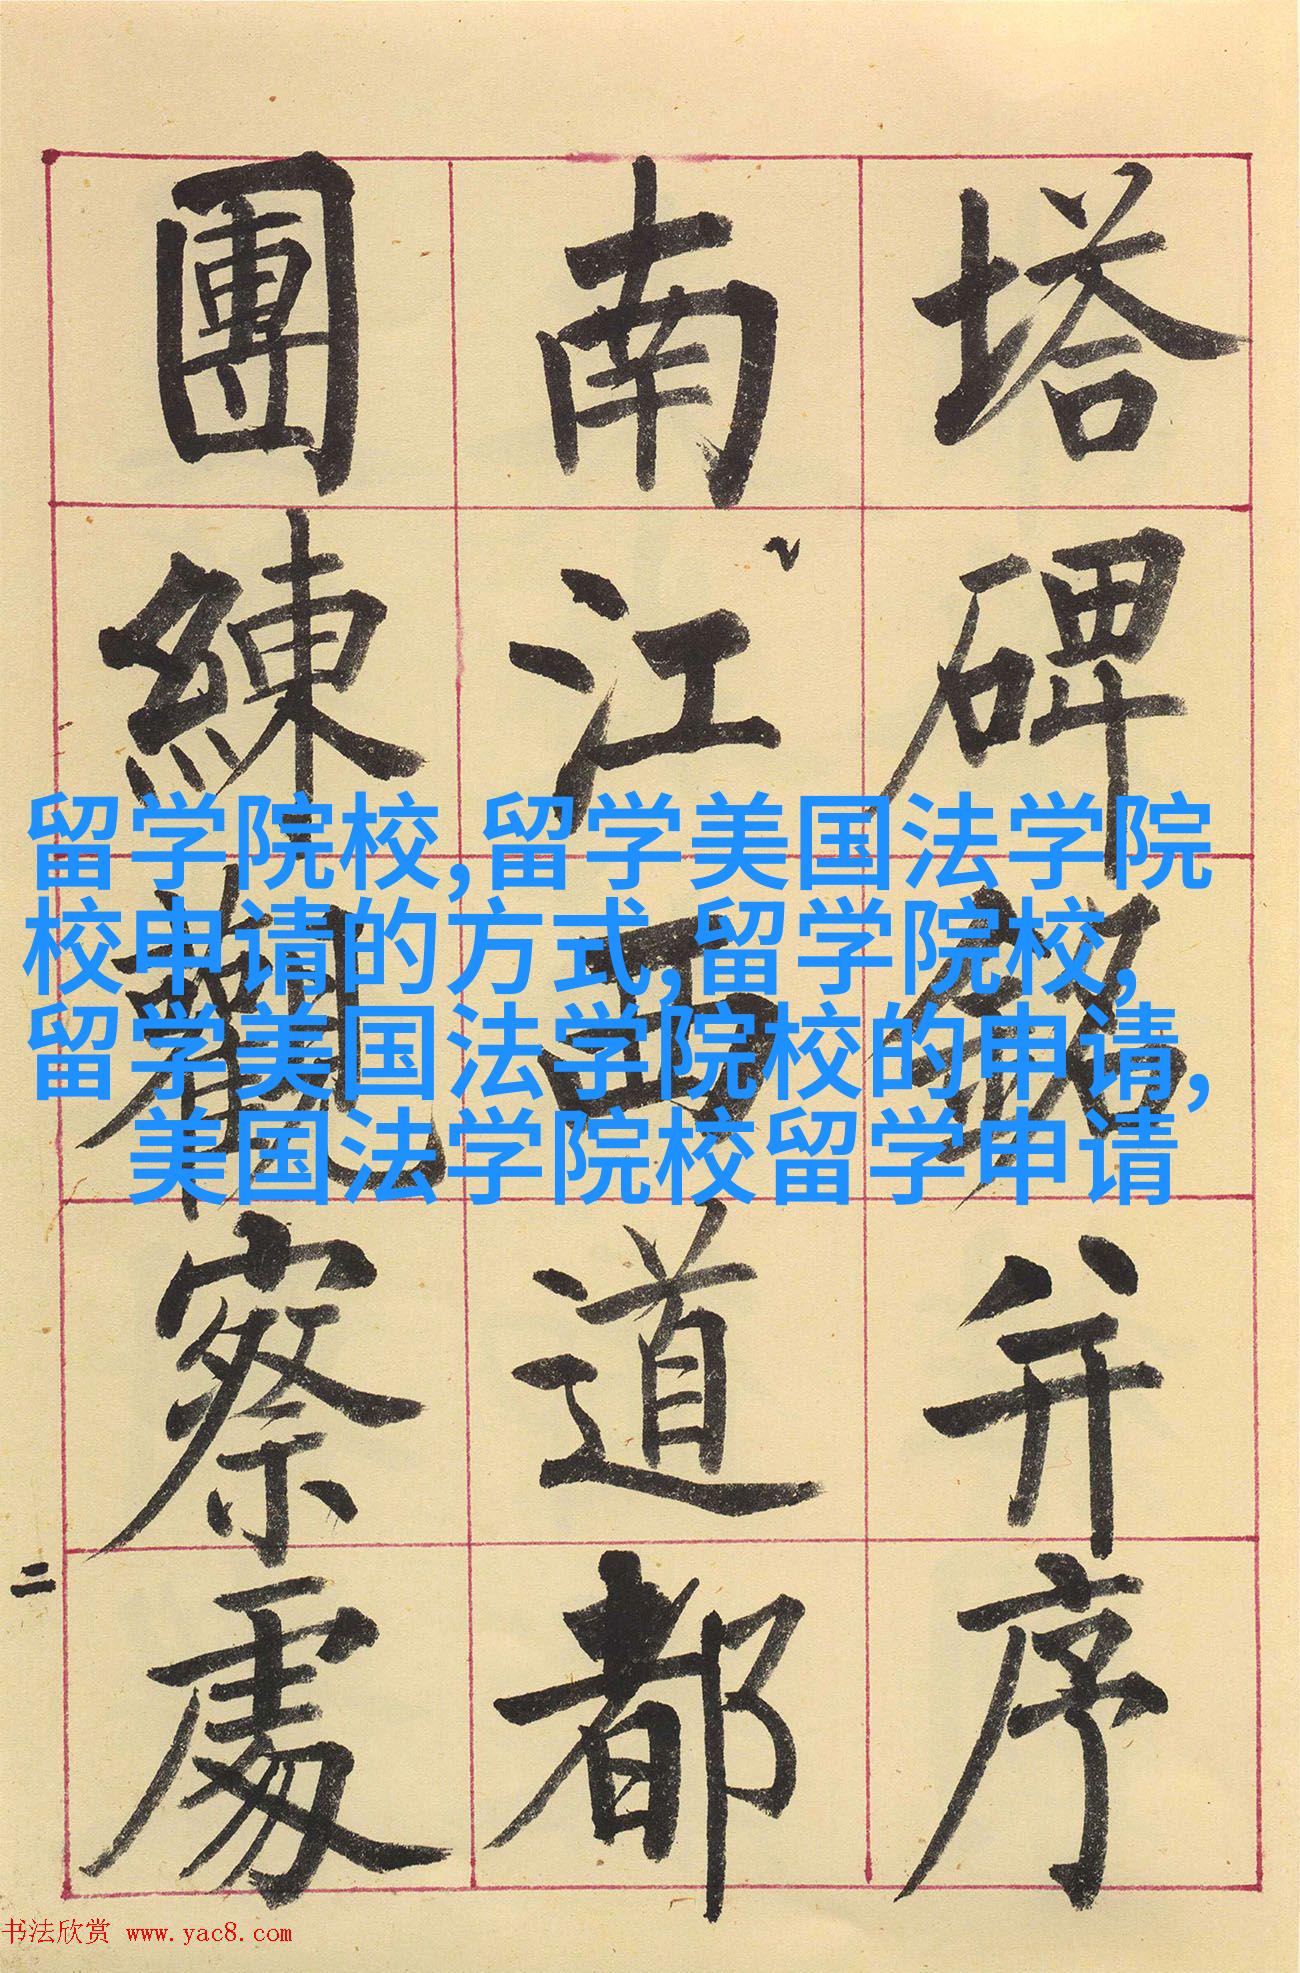 塔碑銘并序
南江西道都
團練觀察處
二
留学院校,留学美国法学院
校申请的方式,留学院校,
留学美国法学院校的申请,
美国法学院校留学申请
书法欣赏 www.yac8.com